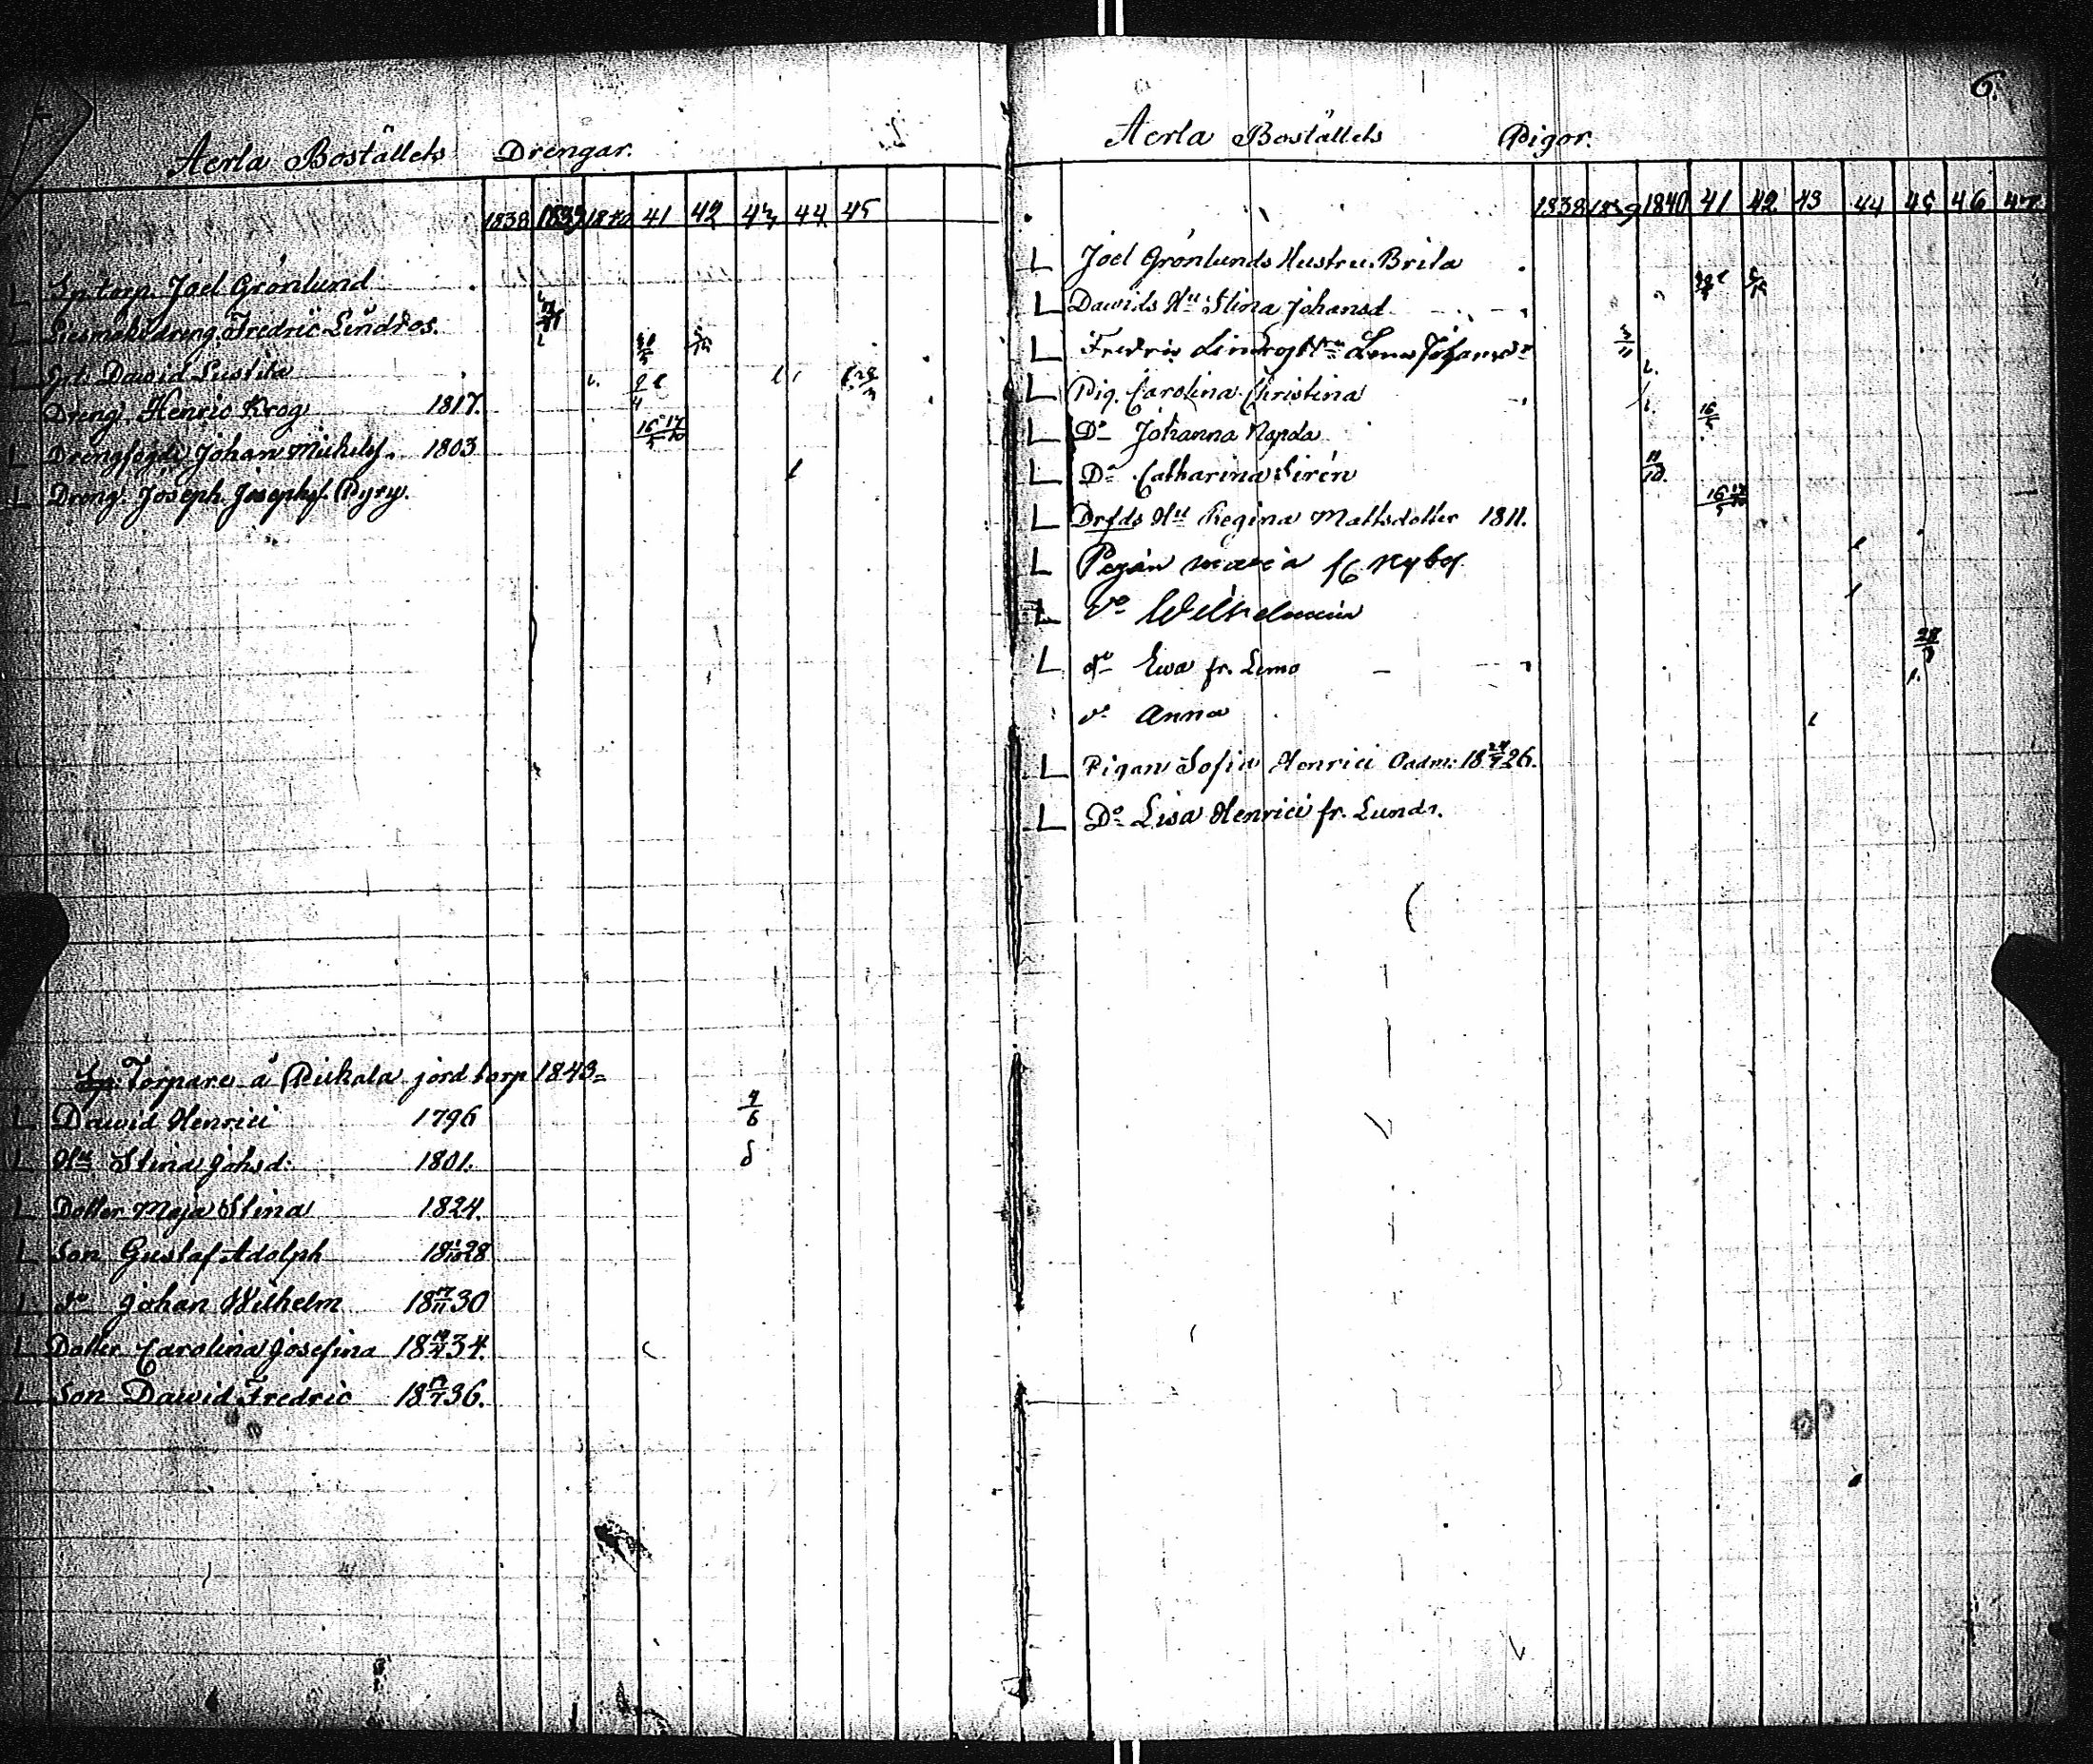 Aerla Boställets Drengar.
1838 1839 1840 41 42 43 44 45
L Sp. torp. Joel Grönlund
L Fredric Lindros.
L Dawid
Dreng. Henric Krog 1817.
30/5
9/4
28/3
L Drengfogde Johan Michelss. 1803
16/5 17/10
L Dreng. Joseph Josephss. Pyry.
Sp. Torpare å Pickala jord torp 1843
L Dawid Henrici 1796
4/6
L Hu Stina Johsd. 1801.
L Dotter Maja Stina 1824.
L Son Gustaf Adolph 18 1/10 28
L do Johan Wilhelm 18 17/11 30
L Dotter Carolina Josefina 18 34.
L Son Dawid Fredric 18 36.
6.
Aerla Boställets Pigor.
1838 1839 1840 41 42 43 44 45 46 47
L Joel Grönlunds Hustru Brita
L Dawids Hu Stina Johansd
L Fredric Lindros Hu Lena Johansdr
L Pig. Carolina Christina
L Do Johanna
16/5
L Do Catharina Sirén
11/10.
L Drfds Hu Regina Mattsdotter 1811.
16/5 17/10
L Pigan Maria fr Nyby
L do Wilhelmina
L do Ewa fr. Lemo
28/3
do Anna
L Pigan Sofia Henrici 18 24/7 26.
L Do Lisa Henrici fr. Lundo.